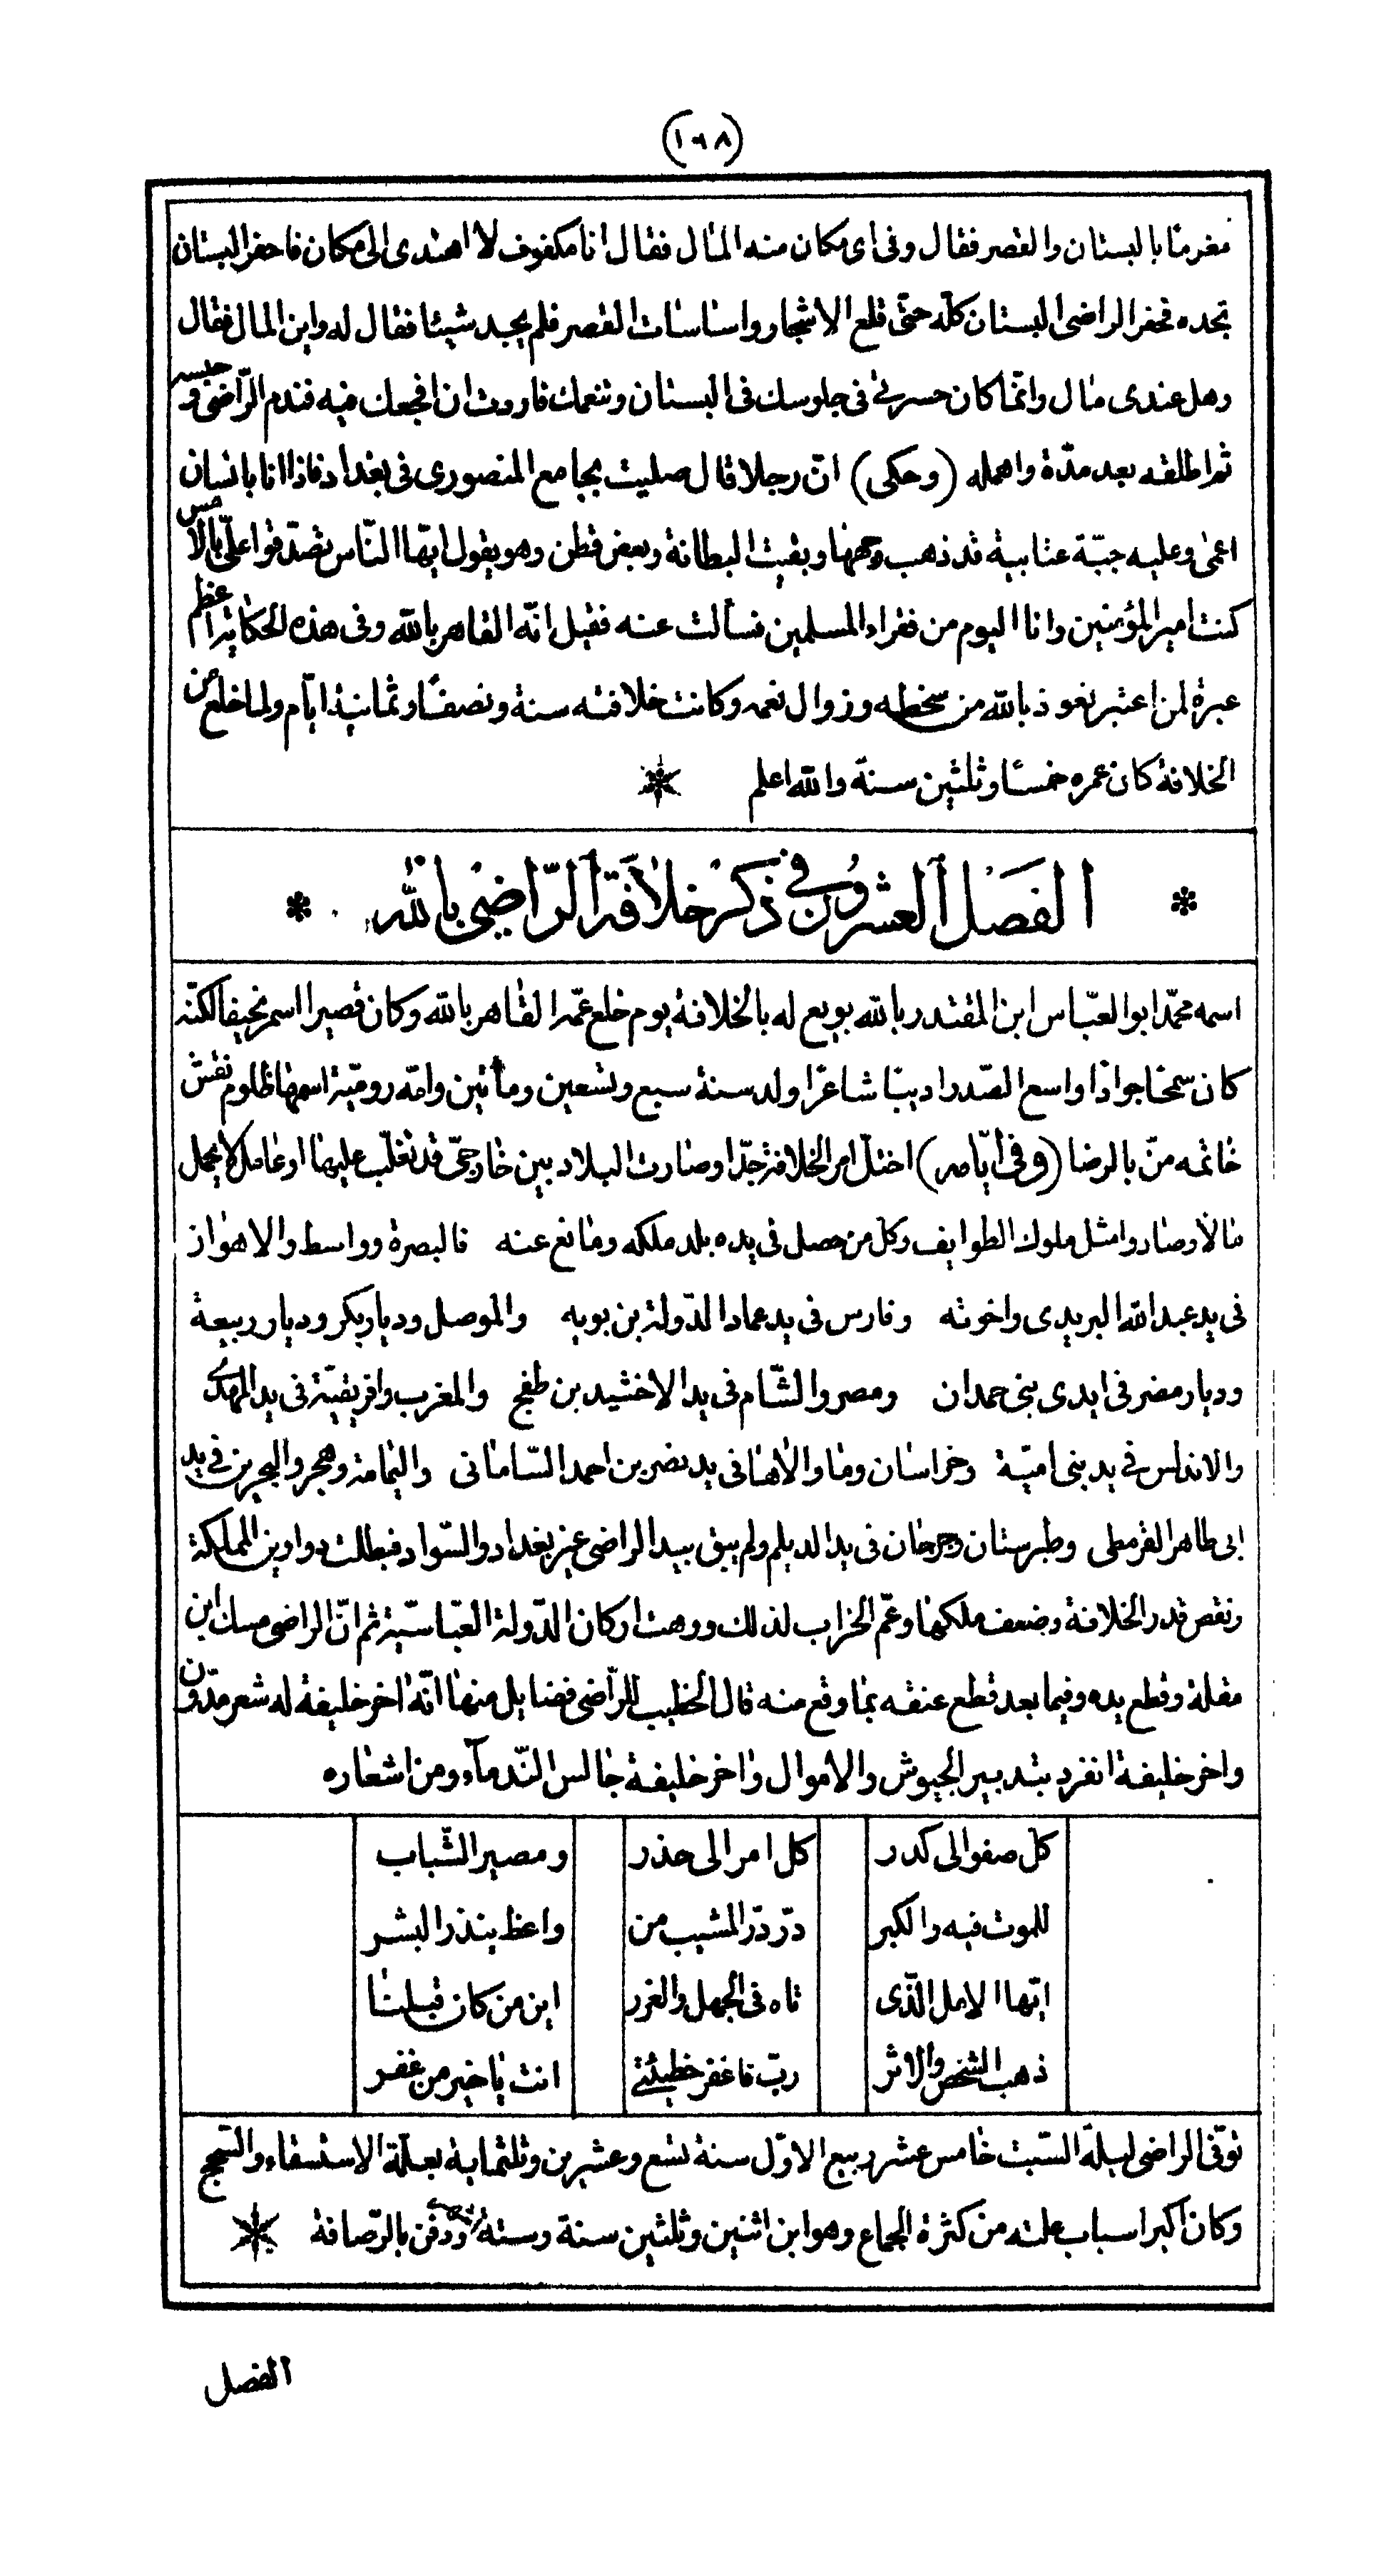 (١٦٨)
مغرمًا بالبستان والقصر فقال وفى اى مكان منه المال فقال انا مكفوف لا اهتدى الى مكان فاحفر البستان
تجده فحفر الراضى البستان كلّه حتّى قلع الاشجار واساسات القصر فلم يجد شيئا فقال له واين المال فقال
وهل عندى مال وانّما كان حسرتى فى جلوسك فى البستان وتنعمك فاردت ان افجعك فيه فندم الرّاضى وحبسه
ثم اطلقه بعد مدّة واهمله (وحكى) انّ رجلا قال صليت بجامع المنصورى فى بغداد فاذا انا بانسان
اعمى وعليه جبّة عتابية قد ذهب وجهها وبقيت البطانة وبعض قطن وهو يقول ايّها النّاس تصدّقوا علىّ بالامس
كنت امير المؤمنين وانا اليوم من فقراء المسلمين فسألت عنه فقيل انّه القاهر بالله وفى هذه الحكاية اعظم
عبرة لمن اعتبر نعوذ بالله من سخطه وزوال نعمه وكانت خلافته سنة ونصفًا وثمانية ايّام ولما خلع من
الخلافة كان عمره خمسًا وثلثين سنة والله اعلم
الفصل العشرون فى ذكر خلافة الرّاضى بالله
اسمه محمّد ابو العبّاس ابن المقتدر بالله بويع له بالخلافة يوم خلع عمّه القاهر بالله وكان قصيرا اسمر نحيفا لكنّه
كان سمحًا جوادًا واسع الصّدر اديبًا شاعرًا ولد سنة سبع وتسعين ومأتين وامّه روميّة اسمها ظلوم نقش
خاتمه منّ بالرضا (وفى ايّامه) اختلّ امر الخلافة جدّا وصارت البلاد بين خارجىّ قد تغلّب عليها او عامل لا يحمل
مالا وصاروا مثل ملوك الطوايف وكل من حصل فى يده بلد ملكه ومانع عنه فالبصرة وواسط والاهواز
فى يد عبد الله البريدى واخوته وفارس فى يد عماد الدّولة بن بويه والموصل وديار بكر وديار ربيعة
وديار مضر فى ايدى بنى حمدان ومصر والشّام فى يد الاخشيد بن طغج والمغرب وافريقيّة فى يد المهدى
والاندلس فى يد بنى اميّة وخراسان وما والاها فى يد نصر بن احمد السّامانى واليمامة وهجر والبحرين فى يد
ابى طاهر القرمطى وطبرستان وجرجان فى يد الديلم ولم يبق بيد الراضى غير بغداد والسّواد فبطلت دواوين المملكة
ونقص قدر الخلافة وضعف ملكها وعمّ الخراب لذلك ووهت اركان الدّولة العبّاسيّة ثم انّ الراضى مسك ابن
مقلة وقطع يده وفيما بعد قطع عنقه بما وقع منه قال الخطيب للرّاضى فضايل منها انّه اخر خليفة له شعر مدّون
واخر خليفة انفرد بتدبير الجيوش والاموال واخر خليفة جالس النّدمآء ومن اشعاره
كل صفو الى كدر كل امر الى حذر ومصير الشّباب
للموت فيه والكبر درّ درّ المشيب من واعظ ينذر البشر
ايّها الامل الّذى تاه فى الجهل والغرر اين من كان قبلنا
ذهب الشخص والاثر ربّ فاغفر خطيئتى انت يا خير من غفر
توفّى الراضى ليلة السّبت خامس عشر ربيع الاوّل سنة تسع وعشرين وثلثماية بعلّة الاستسقاء والتسحج
وكان اكبر اسباب علته من كثرة الجماع وهو ابن اثنين وثلثين سنة وستة اشهر ودفن بالرّصافة
الفصل